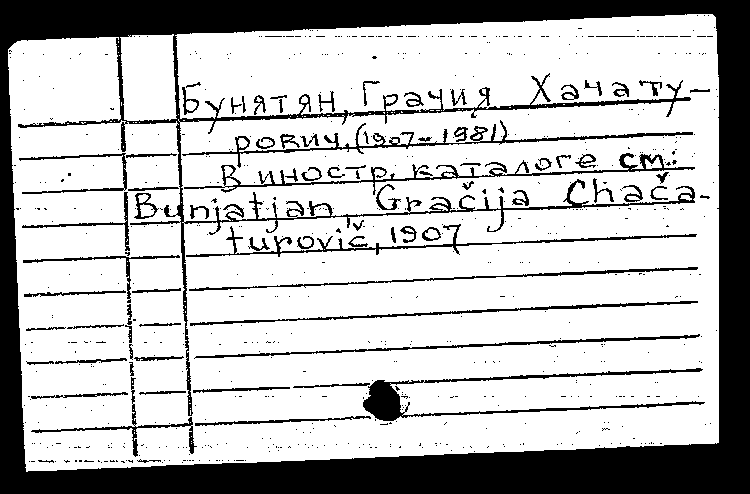 Бунятян, Грачия Хачату-
рович, (1907-1981)
В иностр. каталоге см.:
Bunjatjan, Gračija Chača-
turovič, 1907